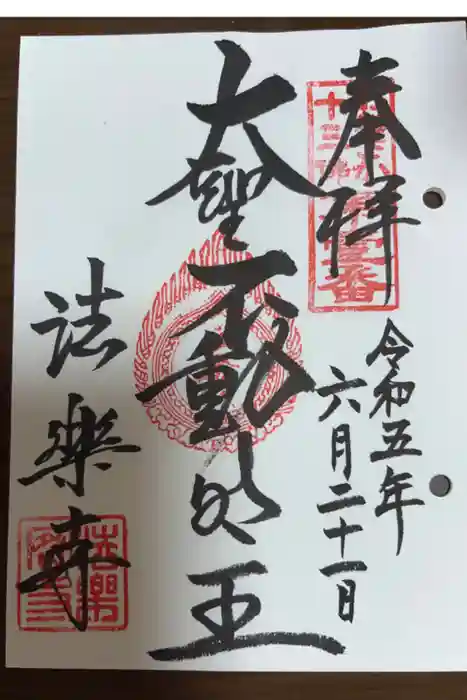 奉拜
十三佛
第壹番
令和五年
六月二十一日
大聖不動明王
法樂寺